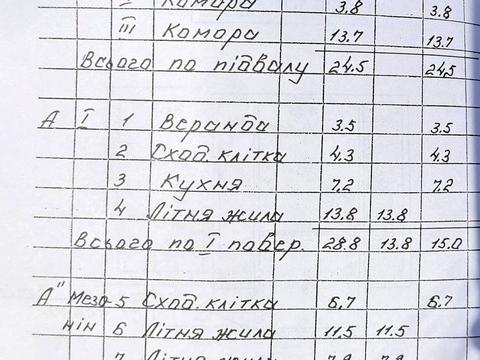 ІІ Комора 3.8 3.8
ІІІ Комора 13.7 13.7
Всього по підвалу 24.5 24.5
А І 1 Веранда 3.5 3.5
2 Сход. клітка 4.3 4.3
3 Кухня 7.2 7.2
4 Літня жила 13.8 13.8
Всього по І повер. 28.8 13.8 15.0
А" Мезо- 5 Сход. клітка 6.7 6.7
нін 6 Літня жила 11.5 11.5
7 Літня жила 7.9 7.9